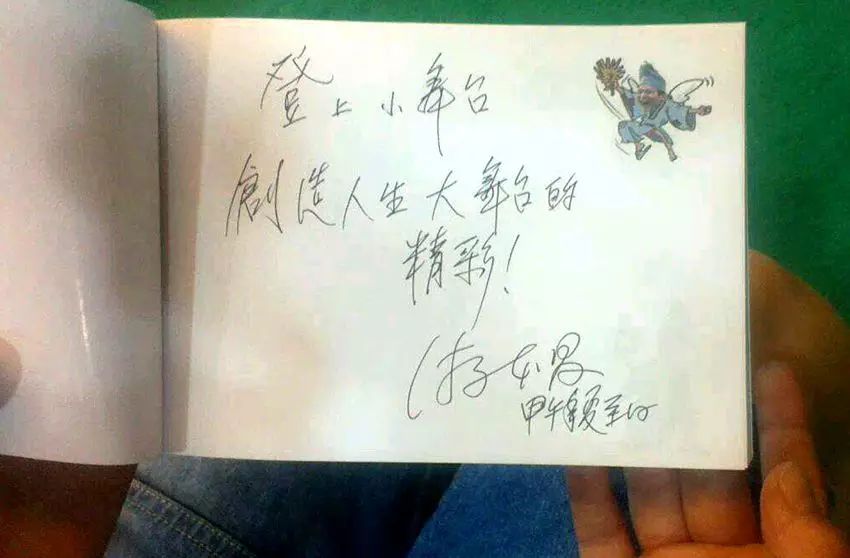 登上小舞台
創造人生大舞台的
精彩!
甲午夏至